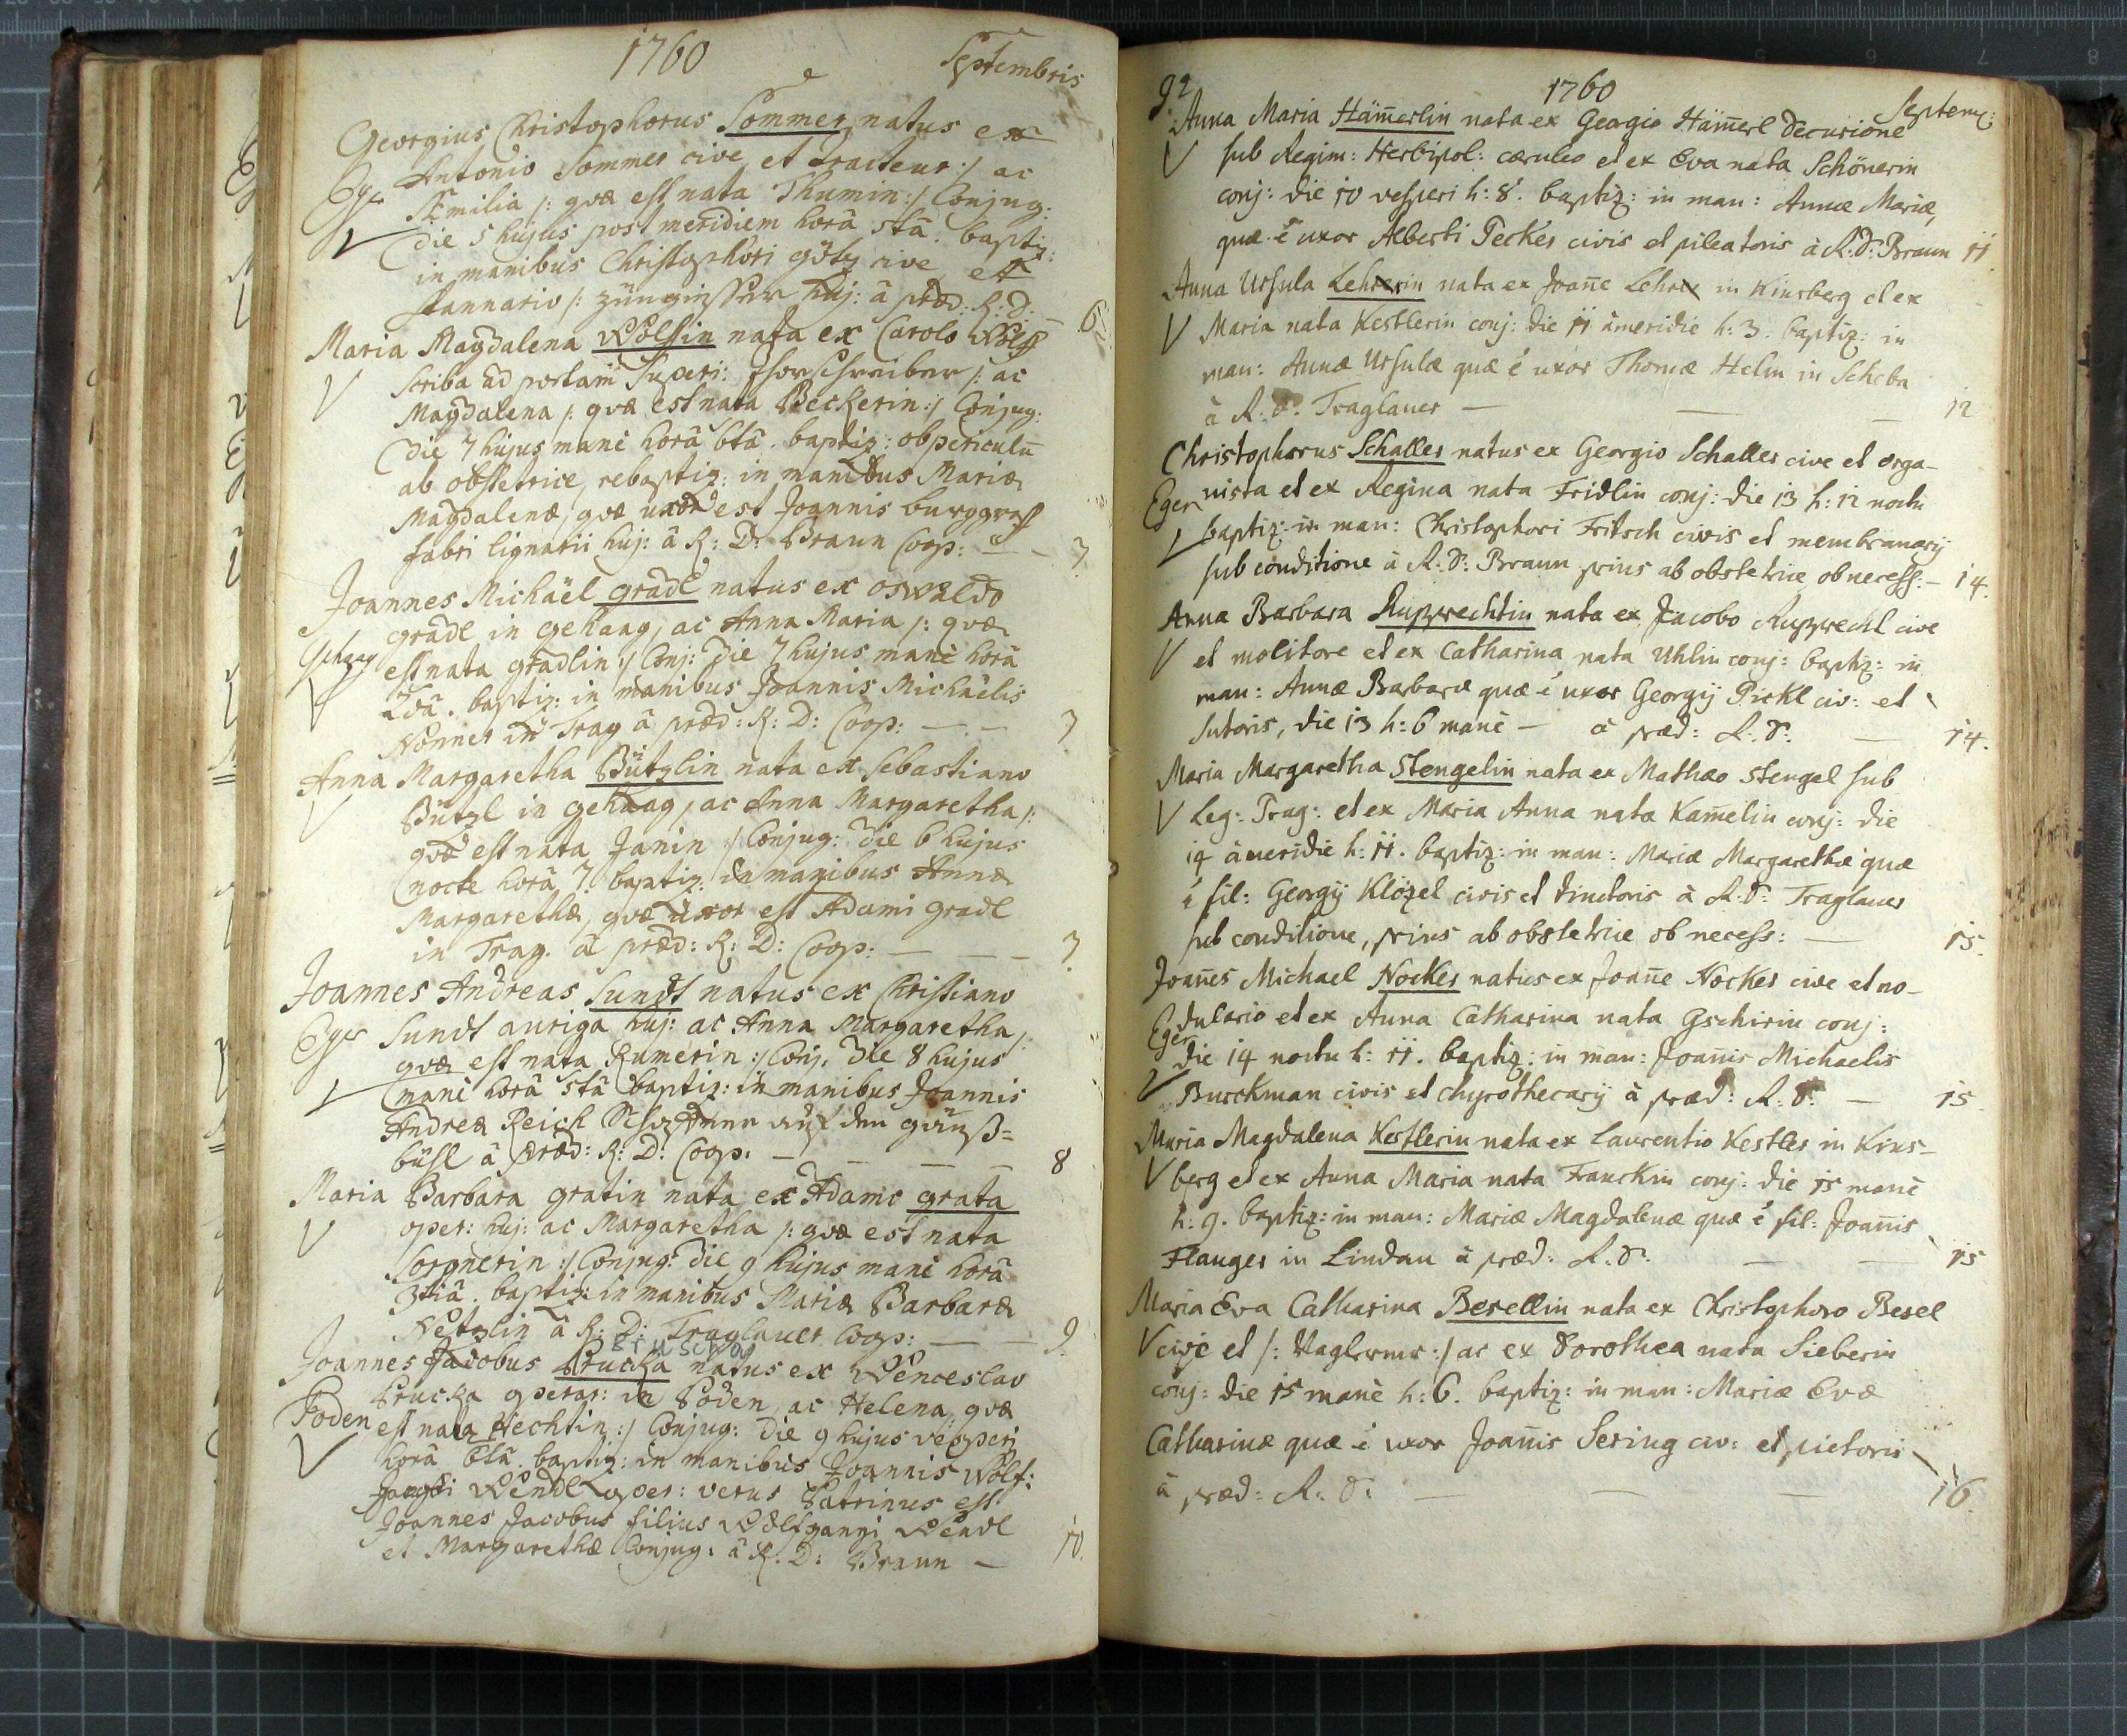 1760
Septembris
Georgius Christophorus Sommer natus ex
Antonio Sommer cive et tracteur :/ ac
Eger
Æmilia /: qvæ est nata Thumin :/ Conjug:
die 5 hujus post meridiem horâ 5tâ. baptiz:
in manibus Christophori götz cive et
stannario /: züngiesser huj: â præd: R: D: — 6.
Maria Magdalena Wolffin nata ex Carolo Wolff
scriba ad portam Superi: thorschreiber /: ac
Magdalena /: qvæ est nata Beckerin :/ Conjug:
die 7 hujus manè horâ 6tâ. baptiz: ob periculu͞
ab obstetrice, rebaptiz: in manibus Mariæ
Magdalenæ, qvæ uxor est Joannis burggraff
fabri lignarii huj: â R: D: Braun Coop: — — 7
Joannes Michaël gradl natus ex oswaldo
gradl in gehaag, ac Anna Maria /: qvæ
gehaag
est nata gradlin :/ Conj: die 7 hujus manè horâ
2dâ. baptiz: in manibus Joannis Michaëlis
Nonner in Trag â præd: R: D: Coop: — — 7
Anna Margaretha Bützlin nata ex Sebastiano
Bützl in gehaag, ac Anna Margaretha /:
qvæ est nata Janin :/ Conjug: die 6 hujus
nocte horâ 7. baptiz: in manibus Annæ
Margarethæ, qvæ uxor est Adami gradl
in Trag. â præd: R: D: Coop: — — — 7
Joannes Andreas Sundt natus ex Christiano
Eger Sundt auriga huj: ac Anna Margaretha /:
qvæ est nata Rumerin :/ Conj: die 8 hujus
manè horâ 5tâ baptiz: in manibus Joannis
Andreæ Reich auf den gänß=
bühl â præd: R: D: Coop: — — — — 8
Maria Barbara gratin nata ex Adamo grata
oper: huj: ac Margaretha /: qvæ est nata
Sorgnerin :/ Conjug: die 9 hujus manè horâ
3tiâ. baptiz: in manibus Mariæ Barbaræ
Netzlin â R: D: Traglauer Coop: — — 9.
Bruscha
Joannes Jacobus Prucka natus ex Wenceslao
Prucka operar: in Poden, ac Helena, qvæ
Poden est nata Hechtin :/ Conjug: die 9 hujus vesperi
horâ 6tâ. baptiz: in manibus Joannis Wolf:
Jacobi Wendl oper: verus Patrinus est
Joannes Jacobus filius Wolfgangi Wendl
et Margarethæ Conjug: â R: D: Braun — 10.
92
1760
Septem:
Anna Maria Häm̅erlin nata ex Georgio Häm̅erl decurione
sub Regim: Herbipol: cæruleo et ex Eva nata Schönerin
conj: die 10 vesperi h: 8. baptiz: in man: Annæ Mariæ,
quæ ē uxor Alberti Peckes civis et pileatoris à R: D: Braun 11.
Anna Ursula Lehrerin nata ex Joan̅e Lehrer in Kinsberg et ex
Maria nata Kestlerin conj: die 11 âmeridie h: 3. baptiz: in
man: Annæ Ursulæ quæ ē uxor Thomæ Helm in Scheba
à R: D: Traglauer — — — 12
Christophorus Schaller natus ex Georgio Schaller cive et orga-
Eger nista et ex Regina nata Fridlin conj: die 13 h: 12 noctu
baptiz: in man: Christophori Fritsch civis et membranarij
sub conditione à R: D: Braun prius ab obstetrice ob necess: — 14.
Anna Barbara Rupprechtin nata ex Jacobo Rupprecht cive
et molitore et ex Catharina nata Uhlin conj: baptiz: in
man: Annæ Barbaræ quæ ē uxor Georgij Pickl civ: et
sutoris, die 13 h: 6 manè — à præd: R: D: — 14.
Maria Margaretha Stengelin nata ex Mathæo Stengel sub
Leg: Prag: et ex Maria Anna nata Kam̅elin conj: die
14 âmeridie h: 11. baptiz: in man: Mariæ Margarethæ quæ
ē fil: Georgij Klözel civis et tinctoris à R: D: Traglauer
sub conditione, prius ab obstetrice ob necess: — 15.
Joan̅es Michael Nockes natus ex Joan̅e Nockes cive et no-
dulario et ex Anna Catharina nata Gschirin conj:
Eger
die 14 noctu h: 11. baptiz: in man: Joan̅is Michaelis
Burckman civis et chyrothecarij à præd: R: D: — 15.
Maria Magdalena Kestlerin nata ex Laurentio Kestler in Kins-
berg et ex Anna Maria nata Franckin conj: die 15 manè
h: 9. baptiz: in man: Mariæ Magdalenæ quæ ē fil: Joan̅is
Flauger in Lindau à præd: R: D: — — 15
Maria Eva Catharina Besellin nata ex Christophoro Besel
cive et /: :/ ac ex Dorothea nata Sieberin
conj: die 15 manè h: 6. baptiz: in man: Mariæ Evæ
Catharinæ quæ ē uxor Joan̅is Sering civ: et pictoris
à præd: R: D: — — — 16.